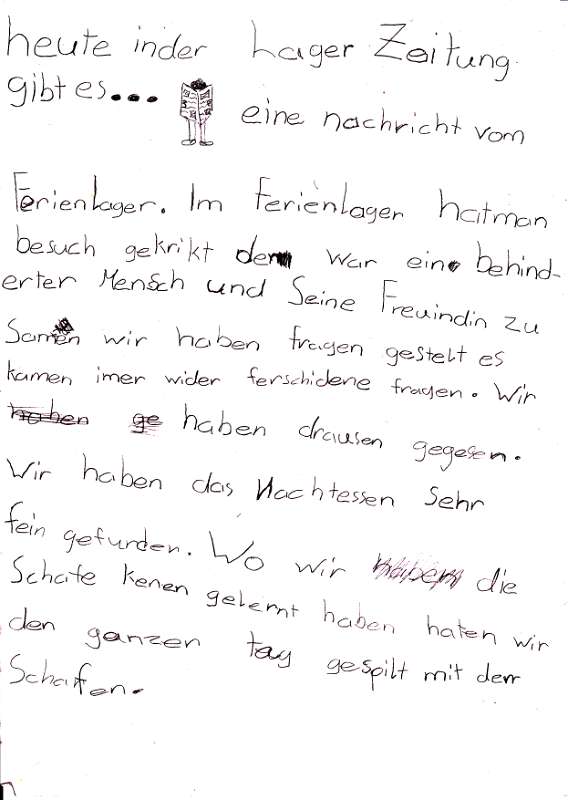 heute inder Lager Zeitung
gibt es...
eine nachricht vom
Ferienlager. Im ferienlager hatman
besuch gekrikt der war ein behind-
erter Mensch und Seine Freuindin zu
Samen wir haben fragen gestelt es
kamen imer wider ferschidene fragen. Wir
haben ge haben drausen gegesen.
Wir haben das Nachtessen Sehr
fein gefunden. Wo wir haben die
Schafe kenen gelernt haben haten wir
den ganzen tag gespilt mit den
Schafen.